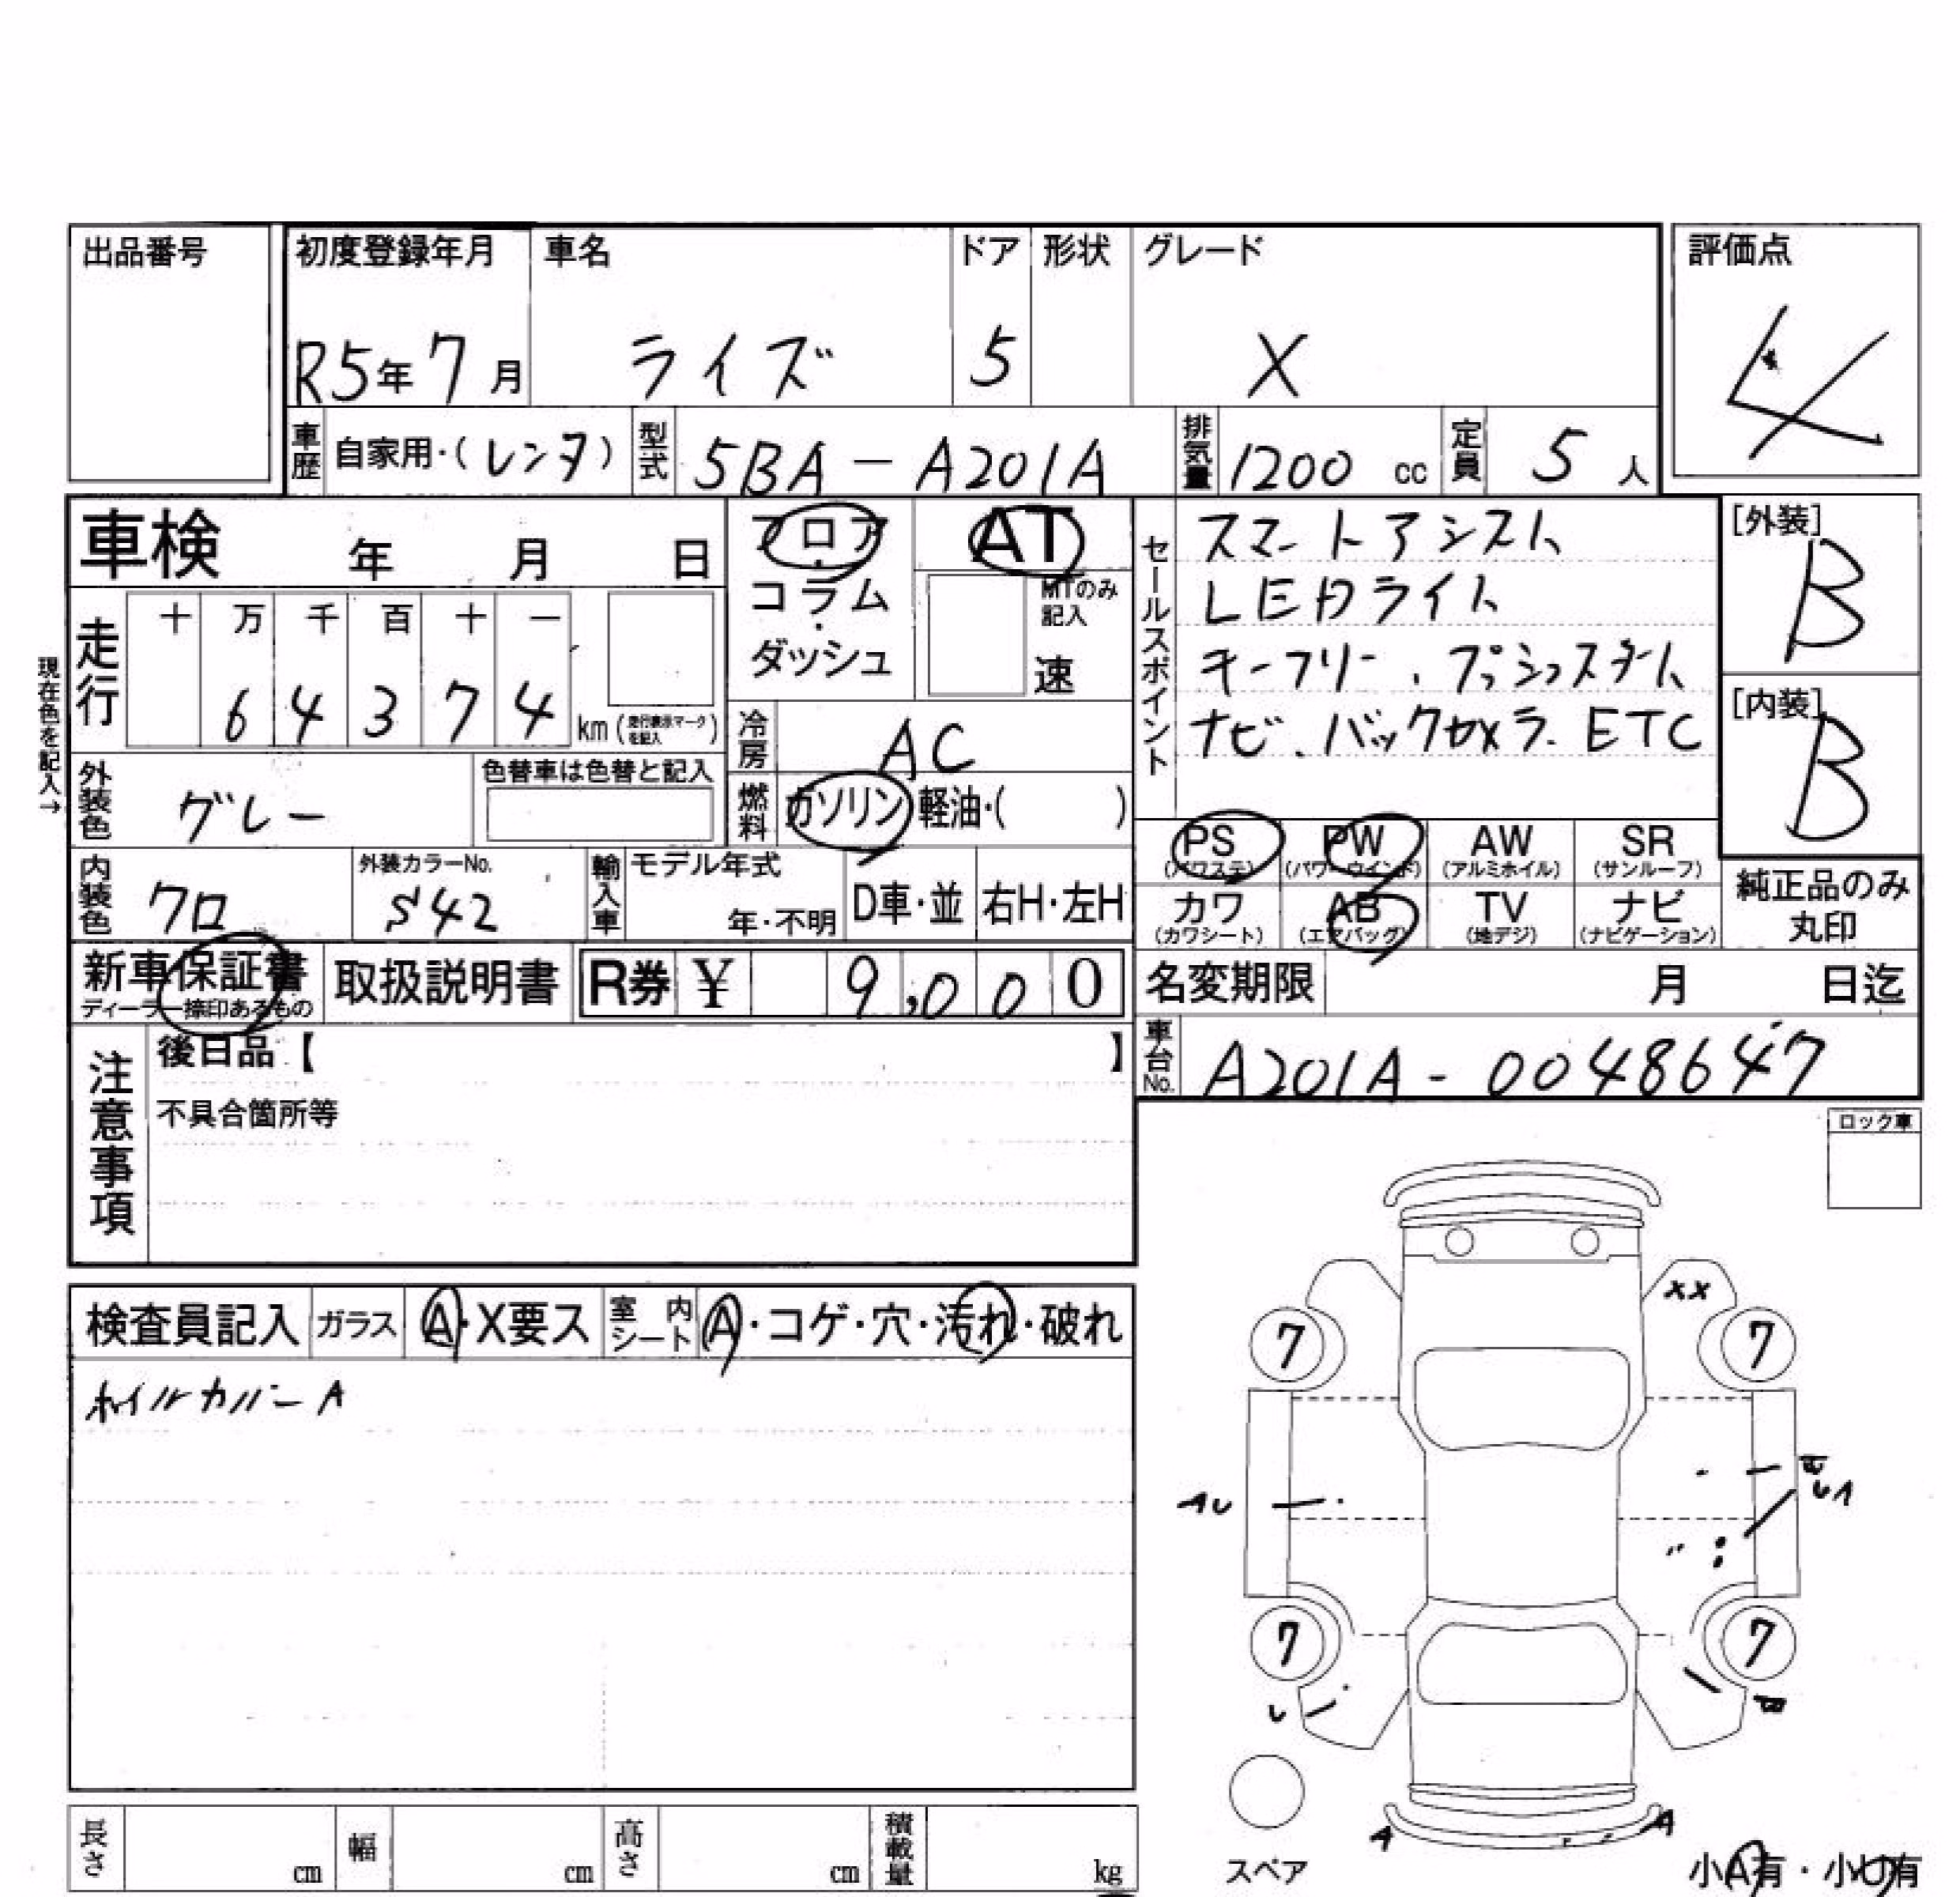 出品番号
初度登録年月 車名 ドア 形状 グレード 評価点
R5年7月 ライズ 5 X 4
車歴 自家用・(レンタ) 型式 5BA-A201A 排気量 1200 cc 定員 5 人
車検 年 月 日
フロア
コラム
ダッシュ
AT
MTのみ記入
速
現在色を記入→
走行 十 万 千 百 十 一
6 4 3 7 4 km (走行表示マークを記入)
冷房 AC
外装色 グレー 色替車は色替と記入
燃料 ガソリン・軽油・( )
内装色 クロ 外装カラーNo. S42
輸入車 モデル年式 年・不明 D車・並 右H・左H
新車保証書 取扱説明書 R券 ¥ 9,000
ディーラー捺印あるもの
セールスポイント
スマートアシスト
LEDライト
キーフリー、プッシュスタート
ナビ、バックカメラ、ETC
[外装]
B
[内装]
B
PS PW AW SR
(パワステ) (パワーウインド) (アルミホイル) (サンルーフ)
カワ AB TV ナビ
(カワシート) (エアバッグ) (地デジ) (ナビゲーション)
純正品のみ
丸印
名変期限 月 日迄
車台No. A201A-0048647
注意事項
後日品【 】
不具合箇所等
ロック車
検査員記入 ガラス A・X要ス 室内シート A・コゲ・穴・汚れ・破れ
ホイルカバーA
XX
7 7
7 7
A A
スペア
小A有・小U有
長さ cm 幅 cm 高さ cm 積載量 kg